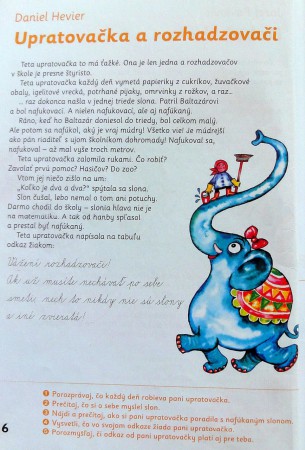 Daniel Hevier
Upratovačka a rozhadzovači
Teta upratovačka to má ťažké. Ona je len jedna a rozhadzovačov
v škole je presne štyristo.
Teta upratovačka každý deň vymetá papieriky z cukríkov, žuvačkové
obaly, igelitové vrecká, potrhané pijaky, omrvinky z rožkov, a raz...
... raz dokonca našla v jednej triede slona. Patril Baltazárovi
a bol nafúkovací. A nielen nafukovací, ale aj nafúkaný.
Ráno, keď ho Baltazár doniesol do triedy, bol celkom malý.
Ale potom sa nafúkol, aký je vraj múdry! Všetko vie! Je múdrejší
ako pán riaditeľ s ujom školníkom dohromady! Nafukoval sa,
nafukoval – až mal vyše troch metrov.
Teta upratovačka zalomila rukami. Čo robiť?
Zavolať prvú pomoc? Hasičov? Do zoo?
Vtom jej niečo zišlo na um:
„Koľko je dva a dva?" spýtala sa slona.
Slon čušal, lebo nemal o tom ani potuchy.
Darmo chodil do školy – slonia hlava nie je
na matematiku. A tak od hanby spľasol
a prestal byť nafúkaný.
Teta upratovačka napísala na tabuľu
odkaz žiakom:
Vážení rozhadzovači!
Ak už musíte nechávať po sebe
smeti, nech to nikdy nie sú slony
a iné zvieratá!
1 Porozprávaj, čo každý deň robieva pani upratovačka.
2 Prečítaj, čo si o sebe myslel slon.
3 Nájdi a prečítaj, ako si pani upratovačka poradila s nafúkaným slonom.
4 Vysvetli, čo vo svojom odkaze žiada pani upratovačka.
5 Porozmýšľaj, či odkaz od pani upratovačky platí aj pre teba.
6